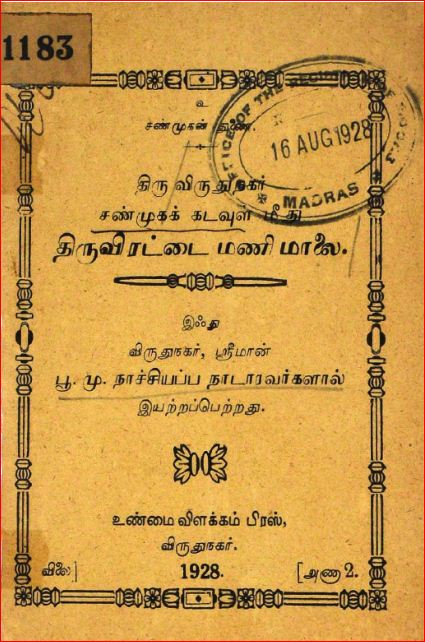 1183
உ
சண்முகன் துணை.
OFFICE OF THE REGISTRAR OF BOOKS
16 AUG 1928
MADRAS
திரு விருதுநகர்
சண்முகக் கடவுள் மீது
திருவிரட்டை மணி மாலை.
இஃது
விருதுநகர், ஸ்ரீமான்
பூ. மு. நாச்சியப்ப நாடாரவர்களால்
இயற்றப்பெற்றது.
உண்மைவிளக்கம் பிரஸ்,
விருதுநகர்.
விலை] 1928. [அணா 2.